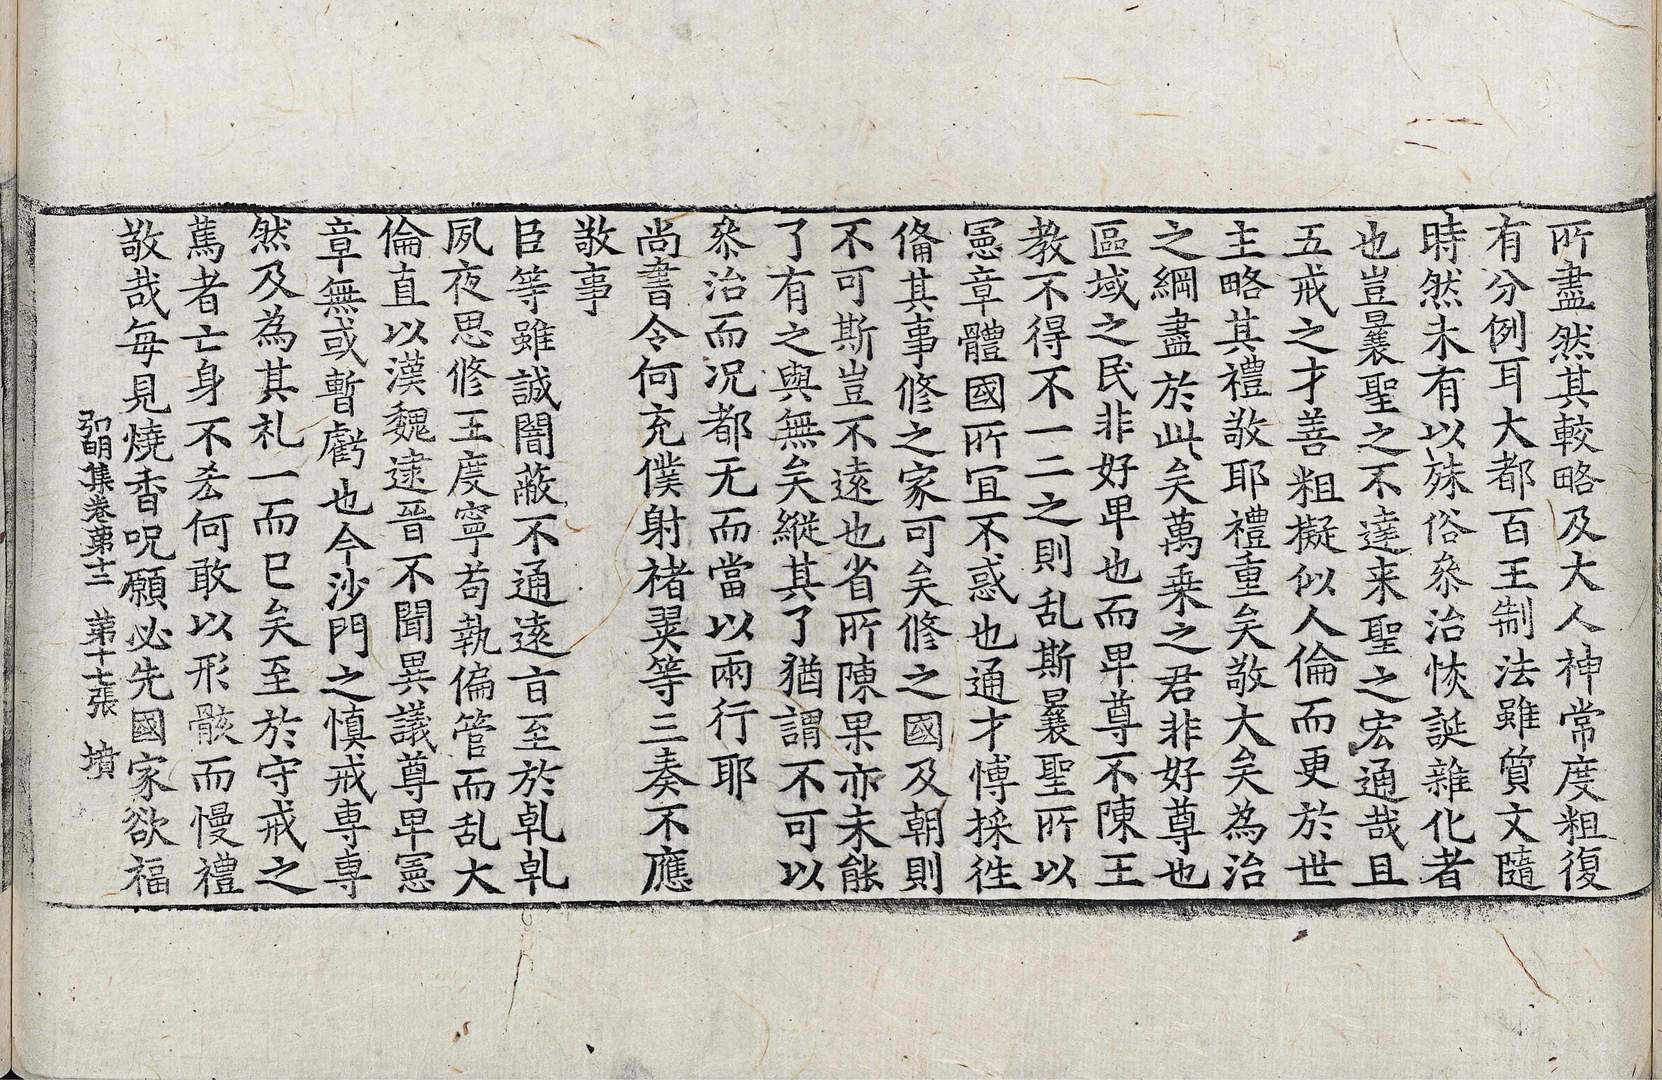 所盡然其較略及大人神常度粗復
有分例耳大都百王制法雖質文隨
時然未有以殊俗叅治恢誕雜化者
也豈曩聖之不達来聖之宏通哉且
五戒之才善粗擬似人倫而更於世
主略其禮敬耶禮重矣敬大矣為治
之綱盡於此矣萬乗之君非好尊也
區域之民非好卑也而卑尊不陳王
教不得不一二之則乱斯曩聖所以
憲章體國所宜不惑也通才博採徃
俻其事修之家可矣修之國及朝則
不可斯豈不遠也省所陳果亦未能
了有之與無矣縱其了猶謂不可以
叅治而况都无而當以兩行耶
尚書令何充僕射褚翜等三奏不應
敬事
臣等雖誠闇蔽不通遠㫖至於乹乹
夙夜思修王度寧苟執偏管而乱大
倫直以漢魏逮晉不聞異議尊卑憲
章無或暫虧也今沙門之慎戒專專
然及為其礼一而已矣至於守戒之
篤者亡身不悋何敢以形骸而慢禮
敬哉每見燒香呪願必先國家欲福
弘明集卷第十二　第十七張　墳